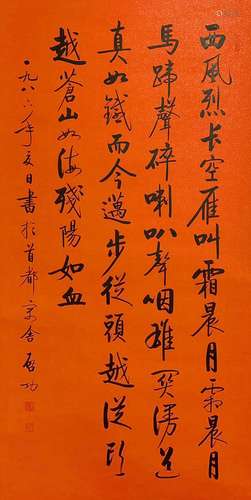 西風烈卡空雁叫霜晨月霜晨月
馬蹄聲碎喇叭聲咽雄関漫道
真如鐵而今邁步從頭越從頭
越蒼山如海殘陽如血
一九八六年夏日書於首都寓舍啟功